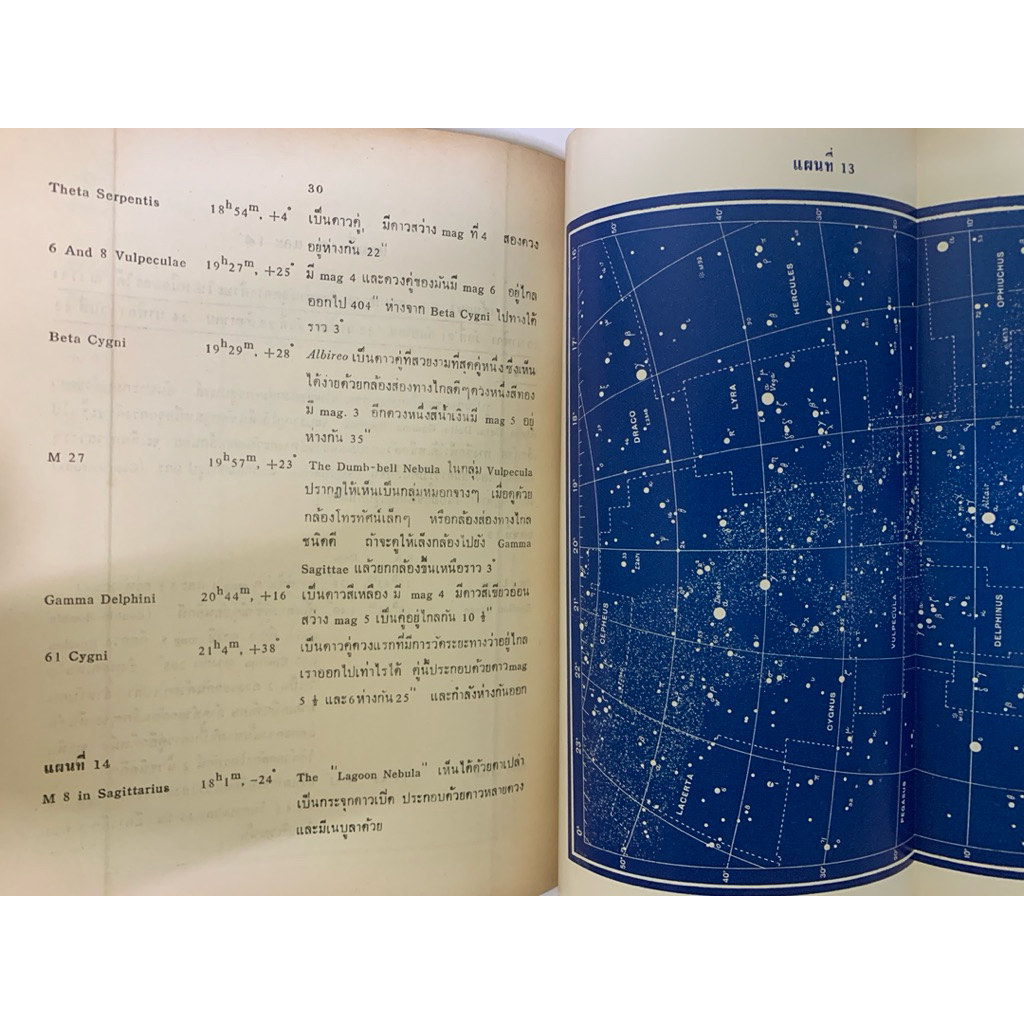 30
Theta Serpentis 18h54m, +4° เป็นดาวคู่ มีดาวสว่าง mag ที่ 4 สองดวง
อยู่ห่างกัน 22"
6 And 8 Vulpeculae 19h27m, +25° มี mag 4 และดวงคู่ของมันมี mag 6 อยู่ไกล
ออกไป 404" ห่างจาก Beta Cygni ไปทางใต้
ราว 3°
Beta Cygni 19h29m, +28° Albireo เป็นดาวคู่ที่สวยงามที่สุดคู่หนึ่ง ซึ่งเห็น
ได้ง่ายด้วยกล้องส่องทางไกลดีๆ ดวงหนึ่งสีทอง
มี mag. 3 อีกดวงหนึ่งสีน้ำเงินมี mag 5 อยู่
ห่างกัน 35"
M 27 19h57m, +23° The Dumb-bell Nebula ในกลุ่ม Vulpecula
ปรากฏให้เห็นเป็นกลุ่มหมอกจางๆ เมื่อดูด้วย
กล้องโทรทัศน์เล็กๆ หรือกล้องส่องทางไกล
ชนิดดี ถ้าจะดูให้เล็งกล้องไปยัง Gamma
Sagittae แล้วยกกล้องขึ้นเหนือราว 3°
Gamma Delphini 20h44m, +16° เป็นดาวสีเหลือง มี mag 4 มีดาวสีเขียวอ่อน
สว่าง mag 5 เป็นคู่อยู่ไกลกัน 10 ½"
61 Cygni 21h4m, +38° เป็นดาวดวงแรกที่มีการวัดระยะทางว่าอยู่ไกล
เราออกไปเท่าไรได้ คู่นี้ประกอบด้วยดาว mag
5 ½ และ 6 ห่างกัน 25" และกำลังห่างกันออก
แผนที่ 14
M 8 in Sagittarius 18h1m, -24° The "Lagoon Nebula" เห็นได้ด้วยตาเปล่า
เป็นกระจุกดาวเปิด ประกอบด้วยดาวหลายดวง
และมีเนบูลาด้วย
แผนที่ 13
50°
40°
30°
10°
M92
HERCULES
OPHIUCHUS
17h
LYRA
Vega
DRACO
18h
19
Altair
20h
CEPHEUS
Deneb
21h
VULPECULA
DELPHINUS
22h
CYGNUS
23h
LACERTA
PEGASUS
0h
50°
40°
30°
10°